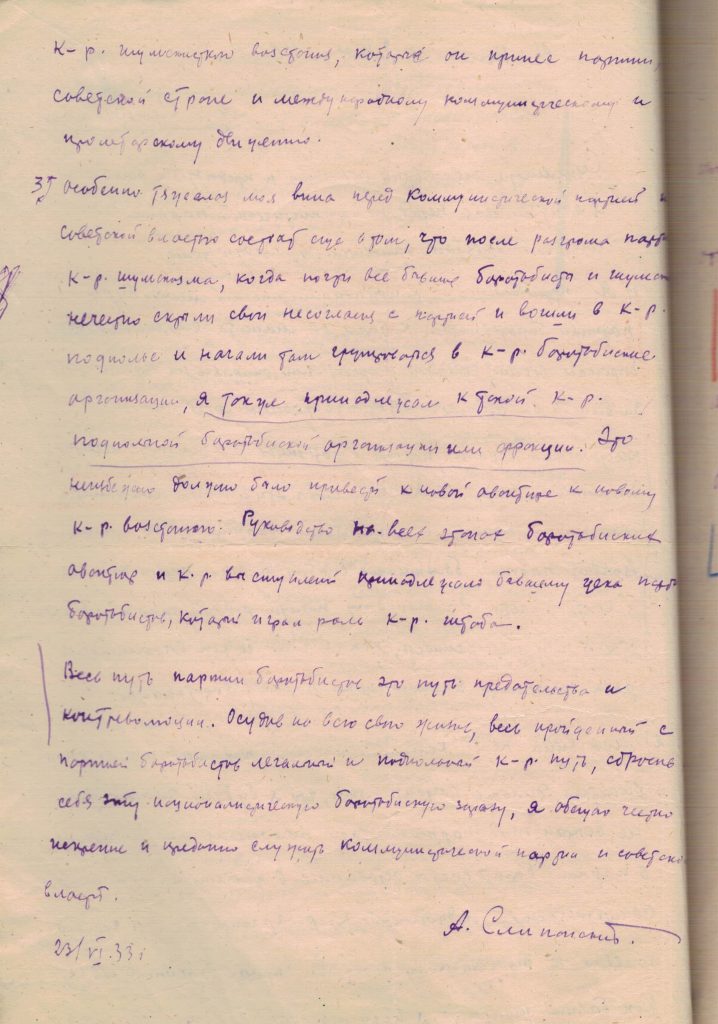 к-р. шумскистского восстания, который он принес партии,
советской стране и международному коммунистическому и
пролетарскому движению.
3) Особенно тяжелая моя вина перед коммунистической партией и
советской властью состоит еще в том, что после разгрома
к-р. шумскизма, когда почти все бывшие боротьбисты и
нечестно скрыли свои несогласия с партией и вошли в к-р.
подполье и начали там группироваться в к-р. боротьбиские
организации, я также принадлежал к такой к-р.
подпольной боротьбиской организации или фракции. Это
неизбежно должно было привести к новой авантюре к новому
к-р. восстанию. Руководство на всех этапах боротьбиских
авантюр и к-р. выступлений принадлежало бывшему цека
боротьбистов, который играл роль к-р. штаба.
Весь путь партии боротьбистов это путь предательства и
контрреволюции. Осудив всю свою жизнь, весь пройденный с
партией боротьбистов легальный и подпольный к-р. путь, сбросив
себя эту националистическую боротьбискую заразу, я обещаю честно
искренне и преданно служить коммунистической партии и
власти.
А. Слипанский.
23/VI.33 г